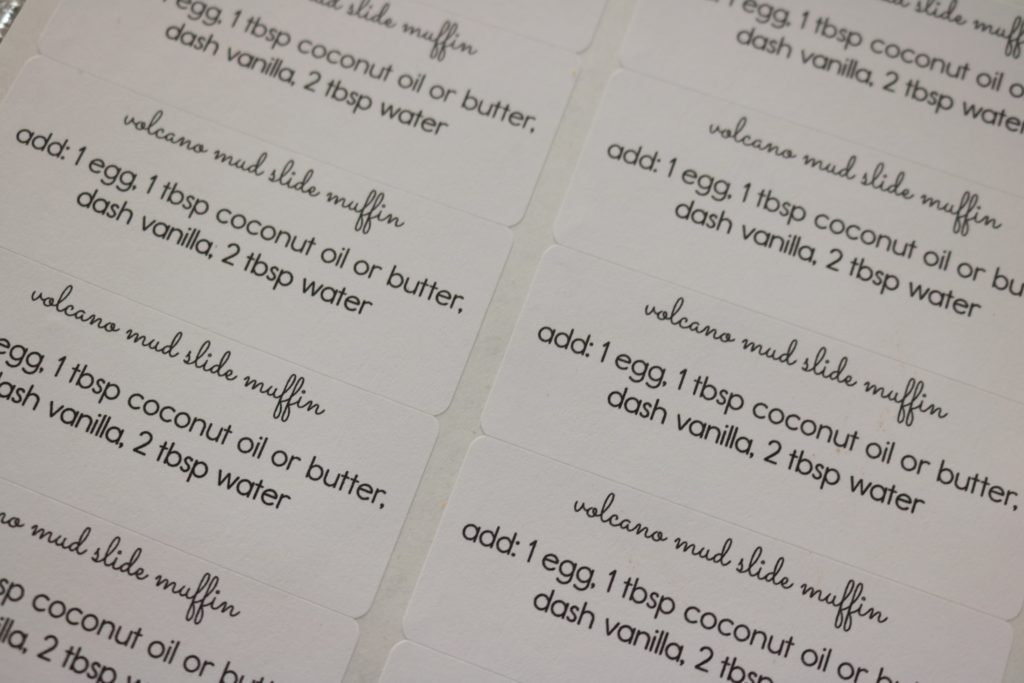 mud slide muffin
egg, 1 tbsp coconut oil or butter,
dash vanilla, 2 tbsp water
volcano mud slide muffin
add: 1 egg, 1 tbsp coconut oil or butter,
dash vanilla, 2 tbsp water
volcano mud slide muffin
egg, 1 tbsp coconut oil or butter,
dash vanilla, 2 tbsp water
mud slide muffin
coconut oil or
2 tbsp
slide
egg, 1 tbsp coconut oil
dash vanilla, 2 tbsp water
volcano mud slide muffin
add: 1 egg, 1 tbsp coconut oil or
dash vanilla, 2 tbsp water
volcano mud slide muffin
add: 1 egg, 1 tbsp coconut oil or butter,
dash vanilla, 2 tbsp water
volcano mud slide muffin
add: 1 egg, 1 tbsp coconut oil or
dash vanilla, 2 tbsp